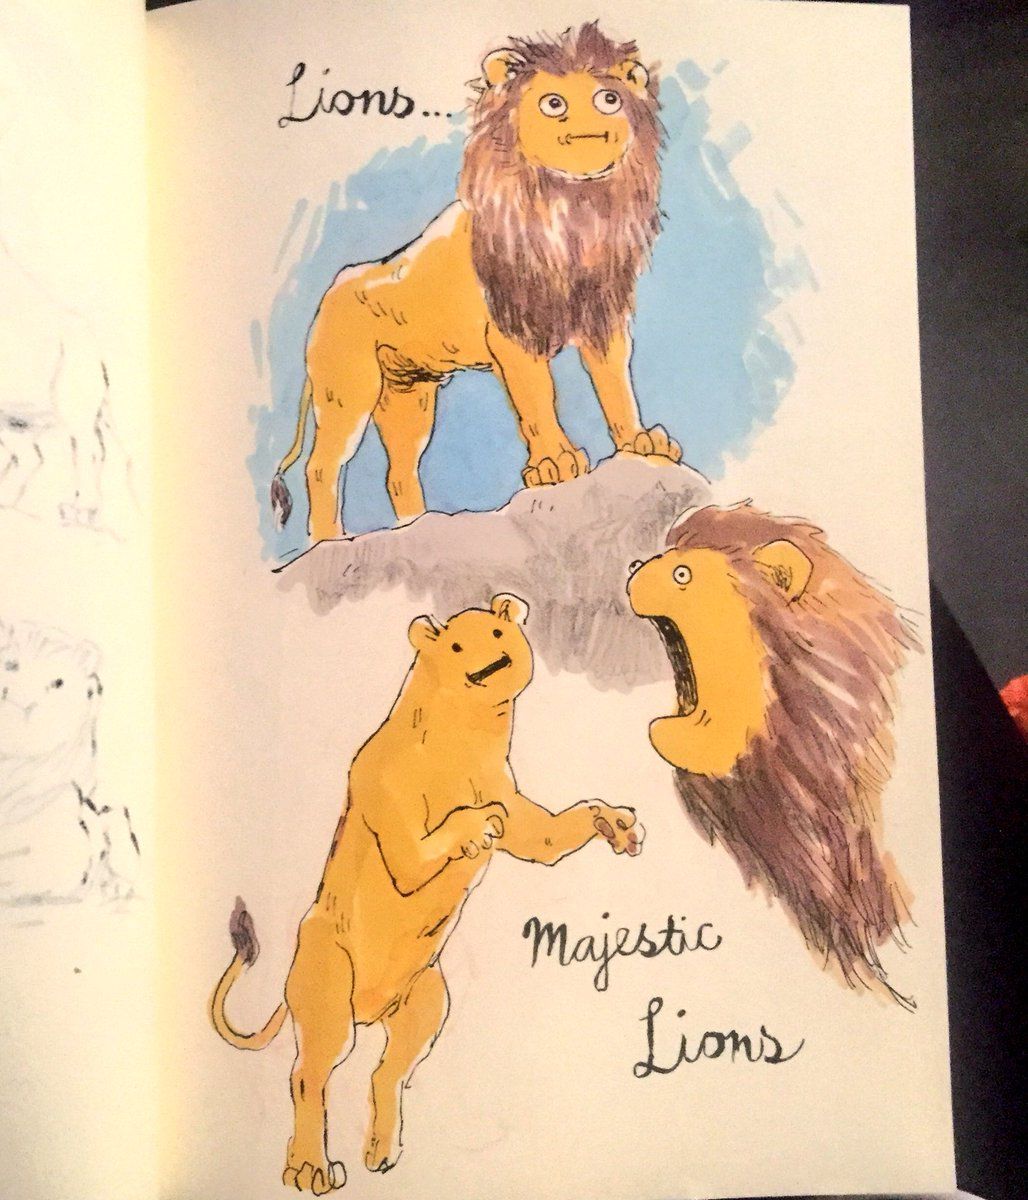 Lions...
Majestic
Lions